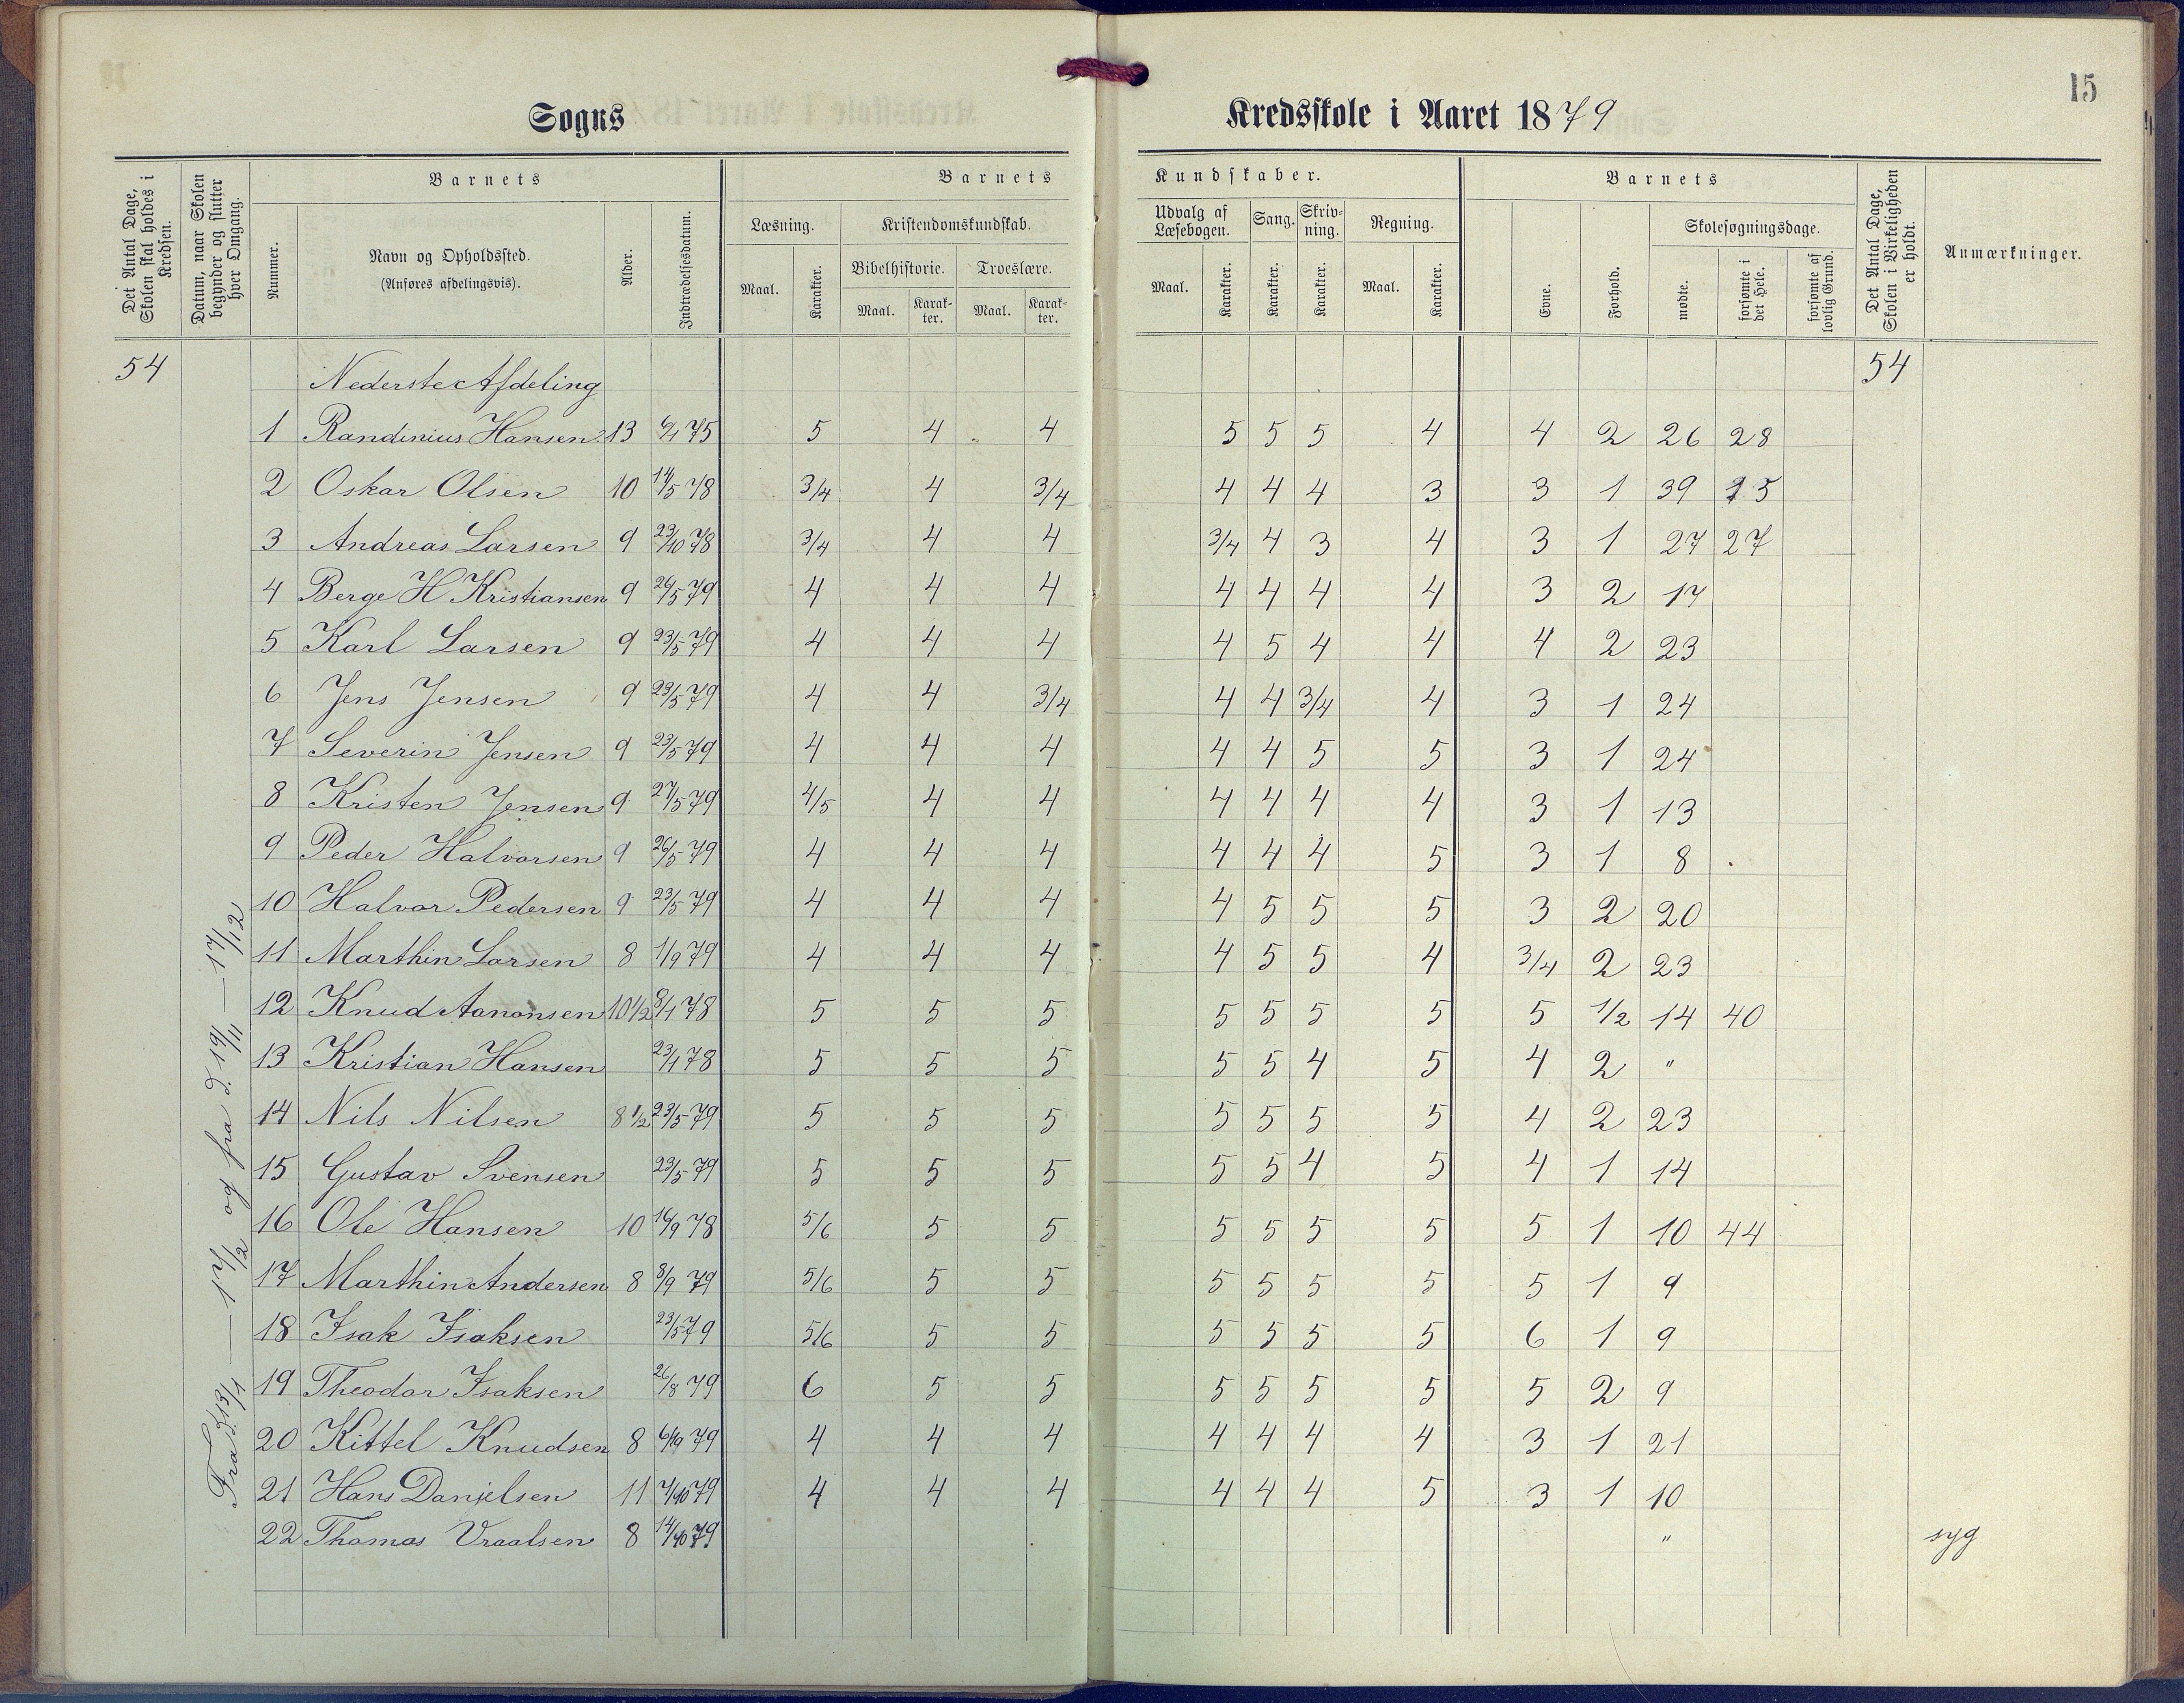 15
Sogns Kredsskole i Aaret 1879
Det Antal Dage, Skolen skal holdes i Kredsen.
Datum, naar Skolen begynder og slutter hver Omgang.
Barnets
Nummer.
Navn og Opholdssted.
(Anføres afdelingsvis).
Alder.
Indtrædelsesdatum.
Barnets Kundskaber.
Læsning.
Maal. Karakter.
Kristendomskundskab.
Bibelhistorie. Troeslære.
Maal. Karak-ter. Maal. Karak-ter.
Udvalg af Læsebogen. Sang. Skriv-ning. Regning.
Maal. Karakter. Karakter. Karakter. Maal. Karakter.
Barnets
Evne. Forhold.
Skolesøgningsdage.
mødte. forsømte i det Hele. forsømte af lovlig Grund.
Det Antal Dage, Skolen i Virkeligheden er holdt.
Anmærkninger.
54 Nederste Afdeling 54
Fra d. 13/1 — 17/2 og fra d. 19/11 — 17/12
1 Randinius Hansen 13 9/1 75 5 4 4 5 5 5 4 4 2 26 28
2 Oskar Olsen 10 14/5 78 3/4 4 3/4 4 4 4 3 3 1 39 15
3 Andreas Larsen 9 23/10 78 3/4 4 4 3/4 4 3 4 3 1 27 27
4 Berge H Kristiansen 9 26/5 79 4 4 4 4 4 4 4 3 2 17
5 Karl Larsen 9 23/5 79 4 4 4 4 5 4 4 4 2 23
6 Jens Jensen 9 23/5 79 4 4 3/4 4 4 3/4 4 3 1 24
7 Severin Jensen 9 23/5 79 4 4 4 4 4 5 5 3 1 24
8 Kristen Jensen 9 27/5 79 4/5 4 4 4 4 4 4 3 1 13
9 Peder Halvorsen 9 26/5 79 4 4 4 4 4 4 5 3 1 8
10 Halvor Pedersen 9 23/5 79 4 4 4 4 5 5 5 3 2 20
11 Marthin Larsen 8 1/9 79 4 4 4 4 5 5 4 3/4 2 23
12 Knud Aanonsen 10 1/2 8/1 78 5 5 5 5 5 5 5 5 1/2 14 40
13 Kristian Hansen 23/1 78 5 5 5 5 5 4 5 4 2 "
14 Nils Nilsen 8 1/2 23/5 79 5 5 5 5 5 5 5 4 2 23
15 Gustav Svensen 23/5 79 5 5 5 5 5 4 5 4 1 14
16 Ole Hansen 10 16/9 78 5/6 5 5 5 5 5 5 5 1 10 44
17 Marthin Andersen 8 8/9 79 5/6 5 5 5 5 5 5 5 1 9
18 Isak Isaksen 23/5 79 5/6 5 5 5 5 5 5 6 1 9
19 Theodor Isaksen 26/8 79 6 5 5 5 5 5 5 5 2 9
20 Kittel Knudsen 8 79 4 4 4 4 4 4 4 3 1 21
21 Hans Danielsen 11 7/10 79 4 4 4 4 4 4 5 3 1 10
22 Thomas Vraalsen 8 14/10 79 " syg